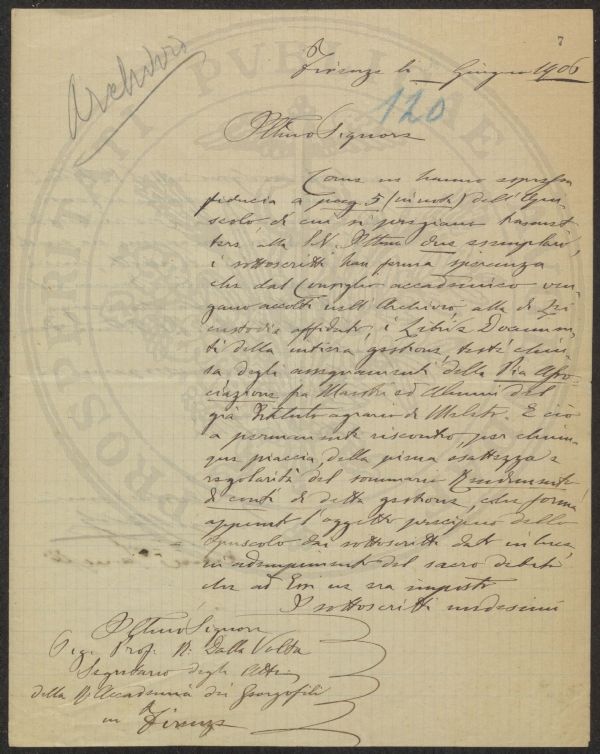 7
Archivio
Firenze li Giugno 1906
120
Ill.mo Signore
Come ne hanno espressa
fiducia a pag. 5 (in nota) dell'Opu-
scolo di cui si pregiano trasmet-
tere alla S.V. Ill.ma due esemplari,
i sottoscritti han ferma speranza
che dal Consiglio accademico ven-
gano accolti nell'Archivio, alla di Lei
custodia affidato, i Libri e Documen-
ti della intiera gestione, testè chiu-
sa degli assegnamenti della Pia Asso-
ciazione fra Maestri ed Alunni del
già Istituto agrario di Meleto. E ciò
a permanente riscontro, per chiun-
que piaccia, della piena esattezza e
regolarità del sommario Rendimento
di conti di detta gestione, che forma
appunto l'oggetto precipuo dello
Opuscolo dai sottoscritti dato in luce
in adempimento del sacro debito
che ad Essi ne era imposto
I sottoscritti medesimi
Ill.mo Signore
Sig. Prof. R. Dalla Volta
Segretario degli Atti
della R. Accademia dei Georgofili
in Firenze
PROSPERITATI PVBLICAE